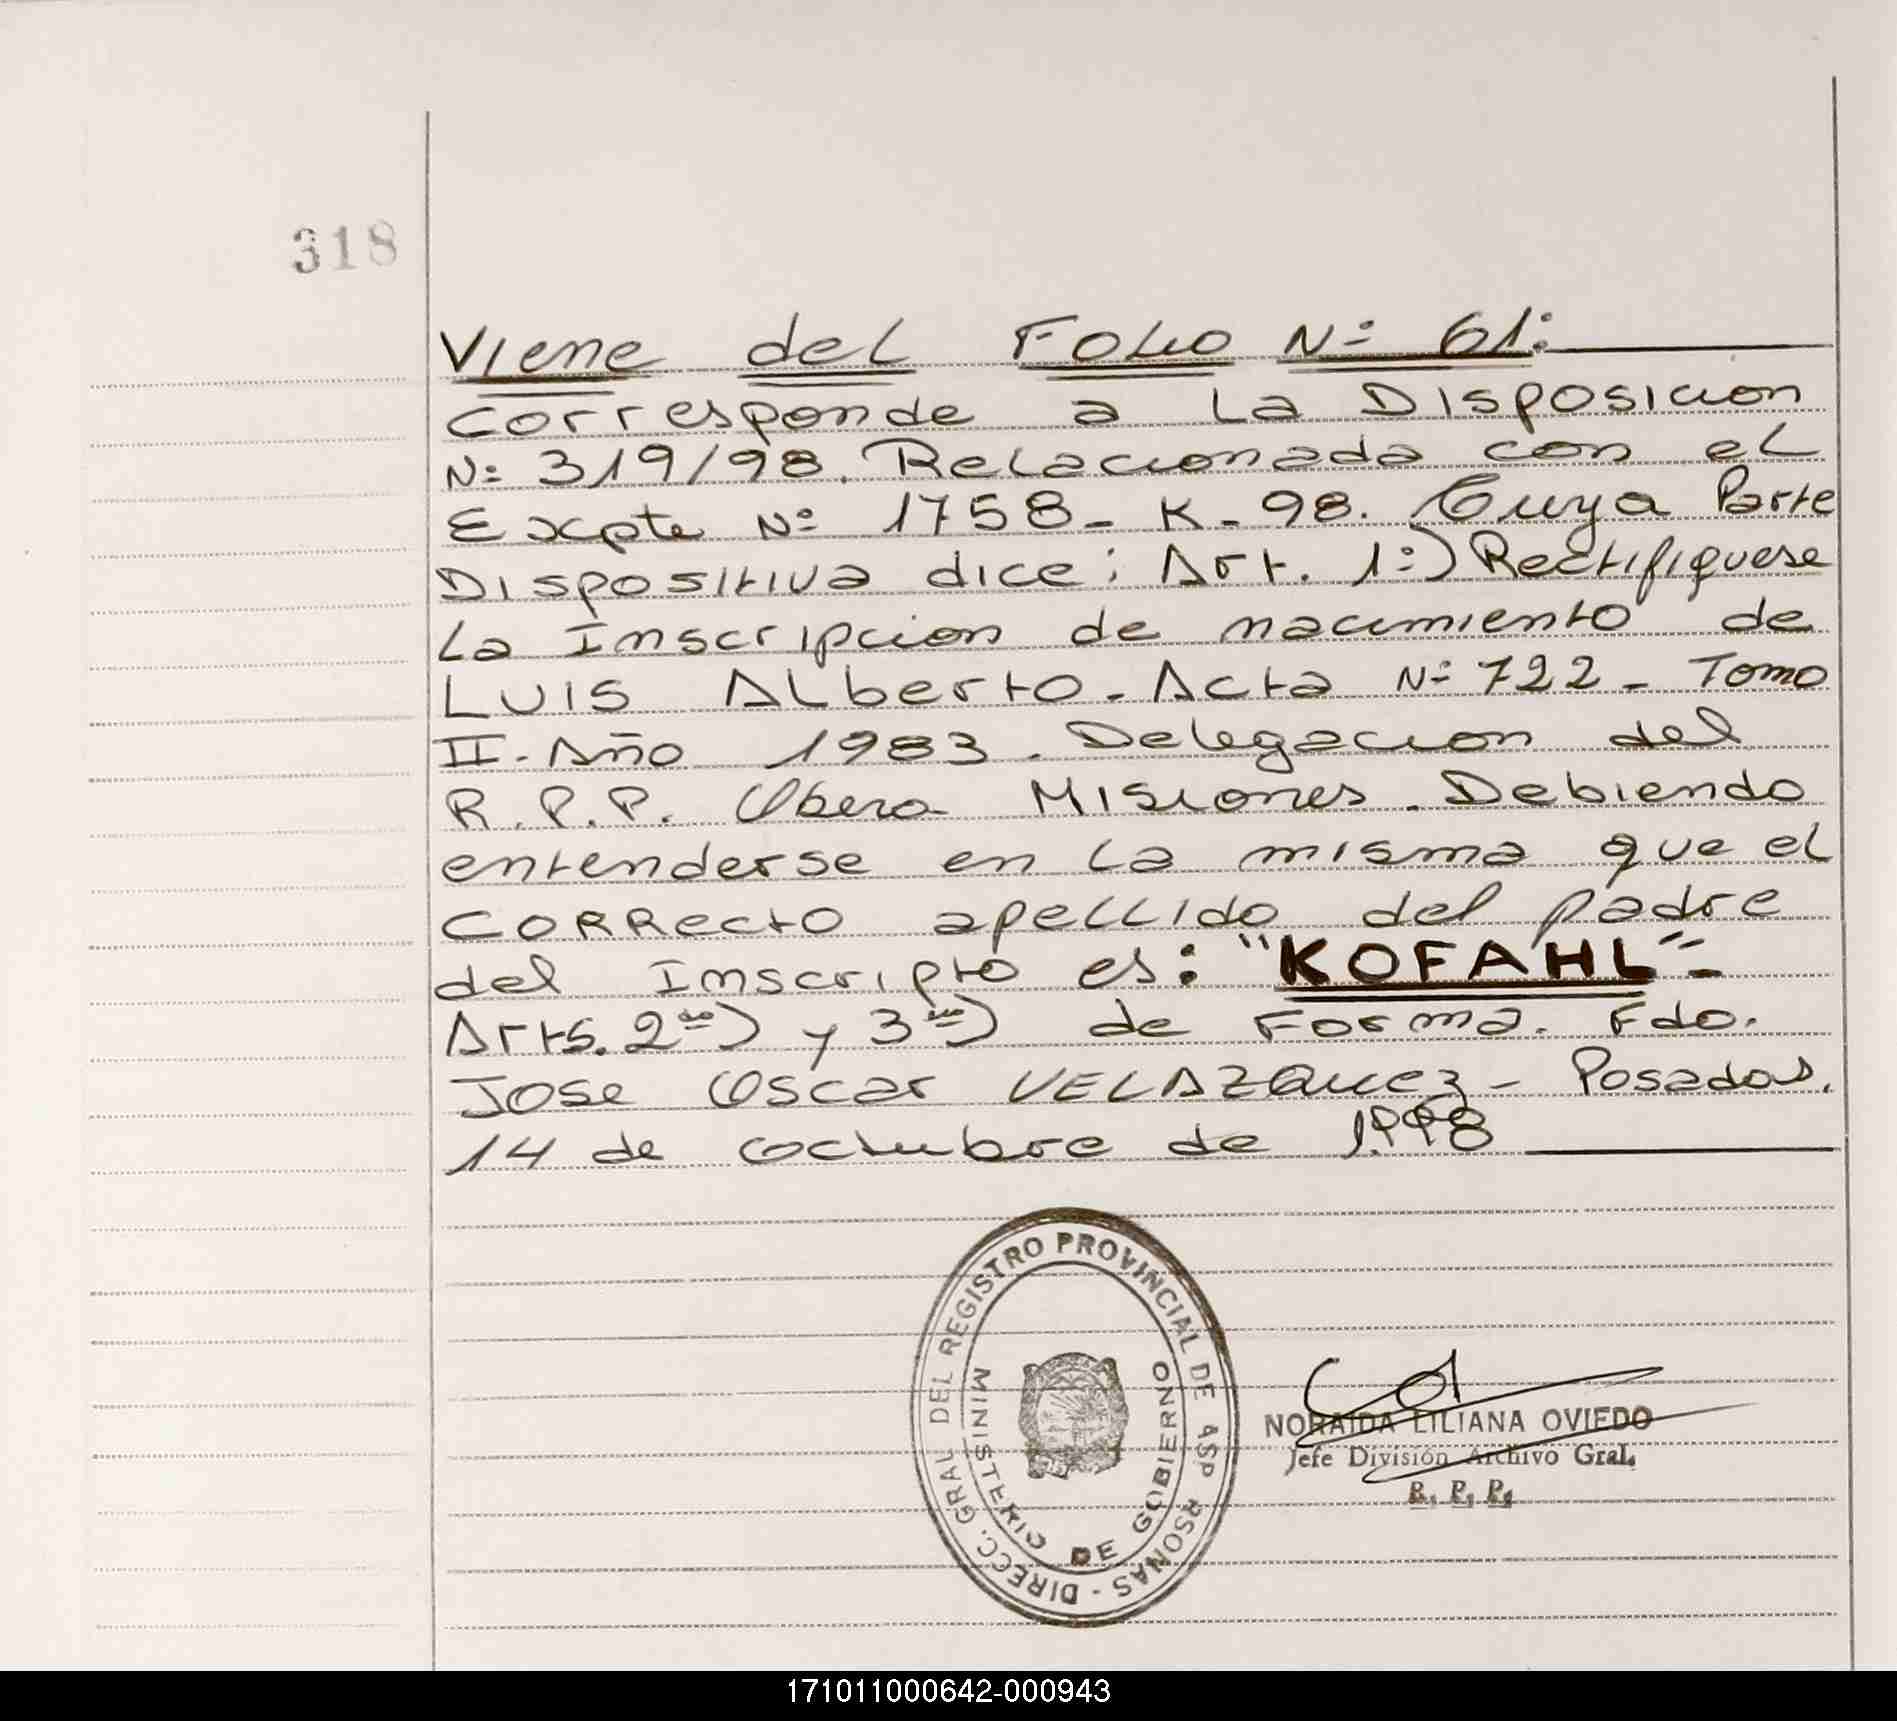 318
Viene del Folio Nº 61:
Corresponde a La Disposicion
Nº 319/98. Relacionada con el
Expte Nº 1758 - K - 98. Cuya Parte
Dispositiva dice: Art. 1º) Rectifiquese
La Inscripcion de nacimiento de
LUIS ALberto - Acta Nº 722 - Tomo
II - Año 1983. Delegacion del
R.P.P. Obera Misiones. Debiendo
entenderse en La misma que el
CORRecto apeLLido del padre
del Inscripto es: "KOFAHL" -
Arts. 2do) y 3ro) de Forma. Fdo.
Jose Oscar VELAZQuez - Posadas,
14 de octubre de 1.998
DIRECC. GRAL DEL REGISTRO PROVINCIAL DE ASP RSONAS -
MINISTERIO DE GOBIERNO
NORAIDA LILIANA OVIEDO
Jefe División Archivo Gral.
R. P. P.
171011000642-000943